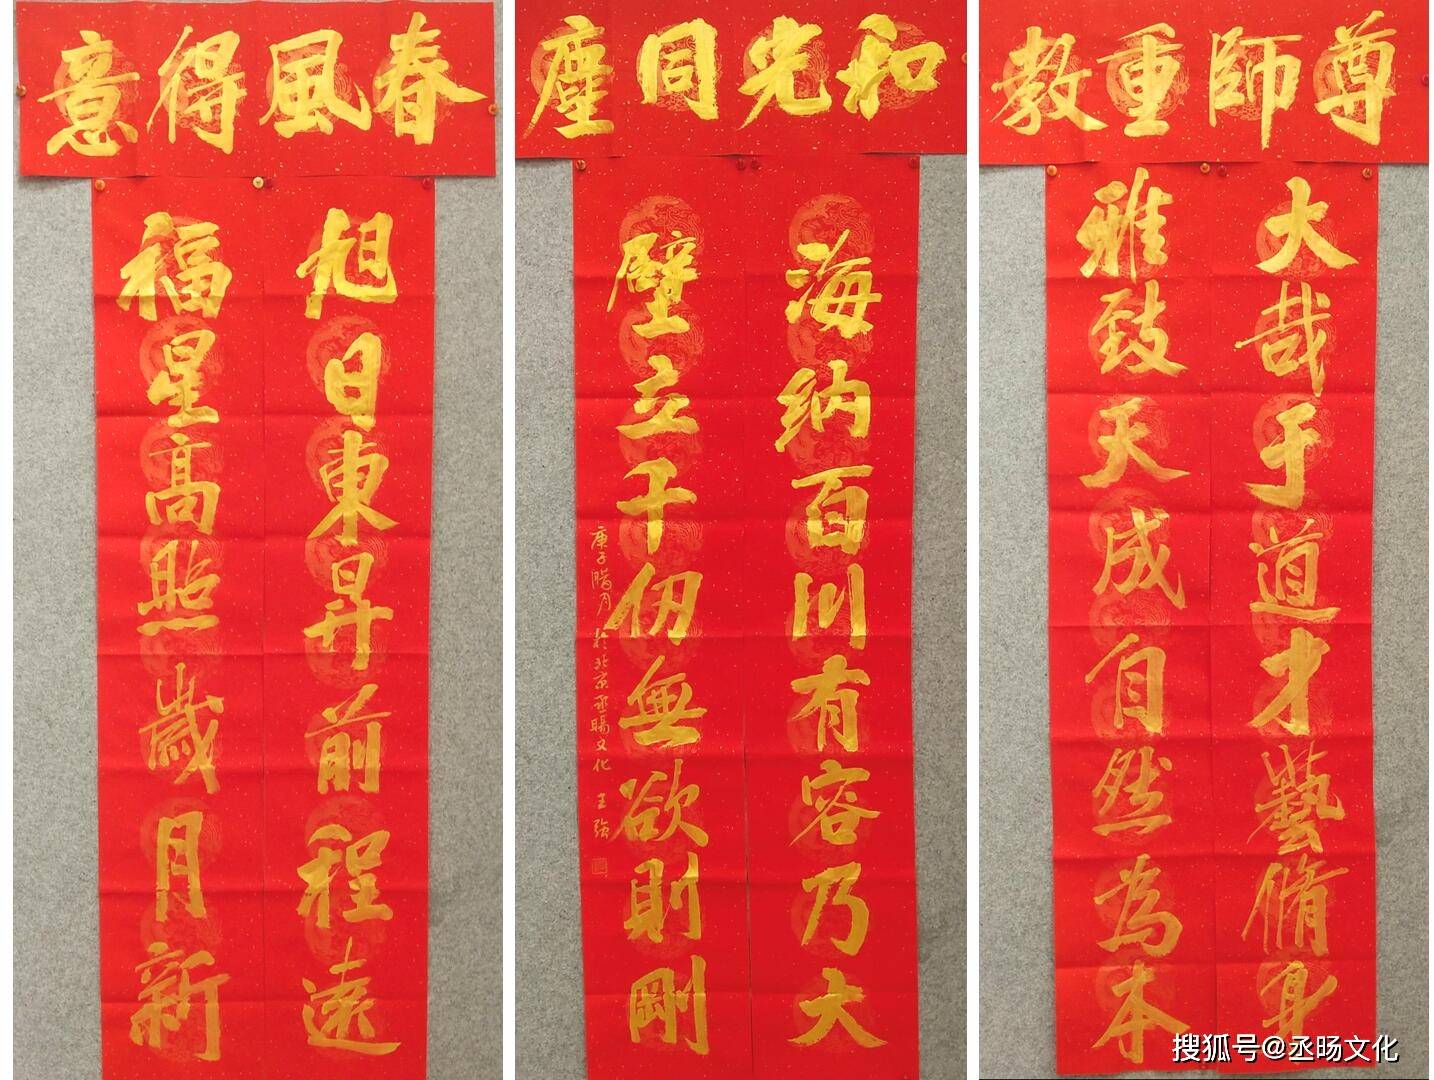 春風得意
旭日東昇前程遠
福星高照歲月新
和光同塵
海納百川有容乃大
壁立千仞無欲則剛
庚子腊月於北京丞暘文化 王強
尊師重教
大哉于道才藝脩身
雅致天成自然為本
搜狐号@丞旸文化